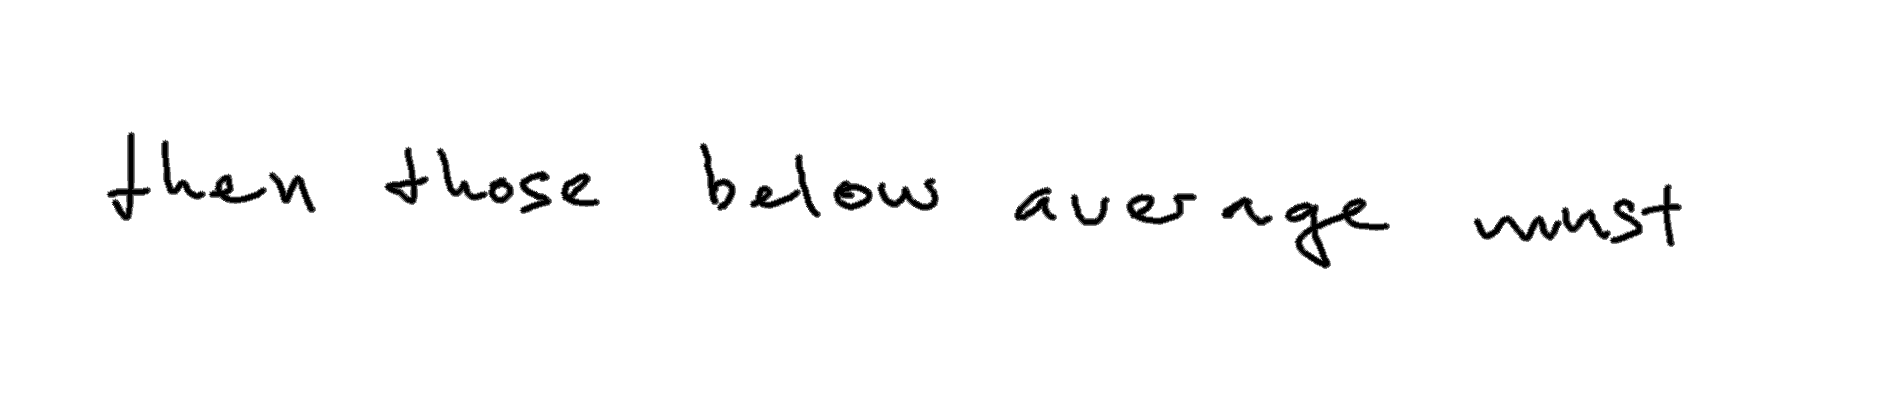 then those below average must